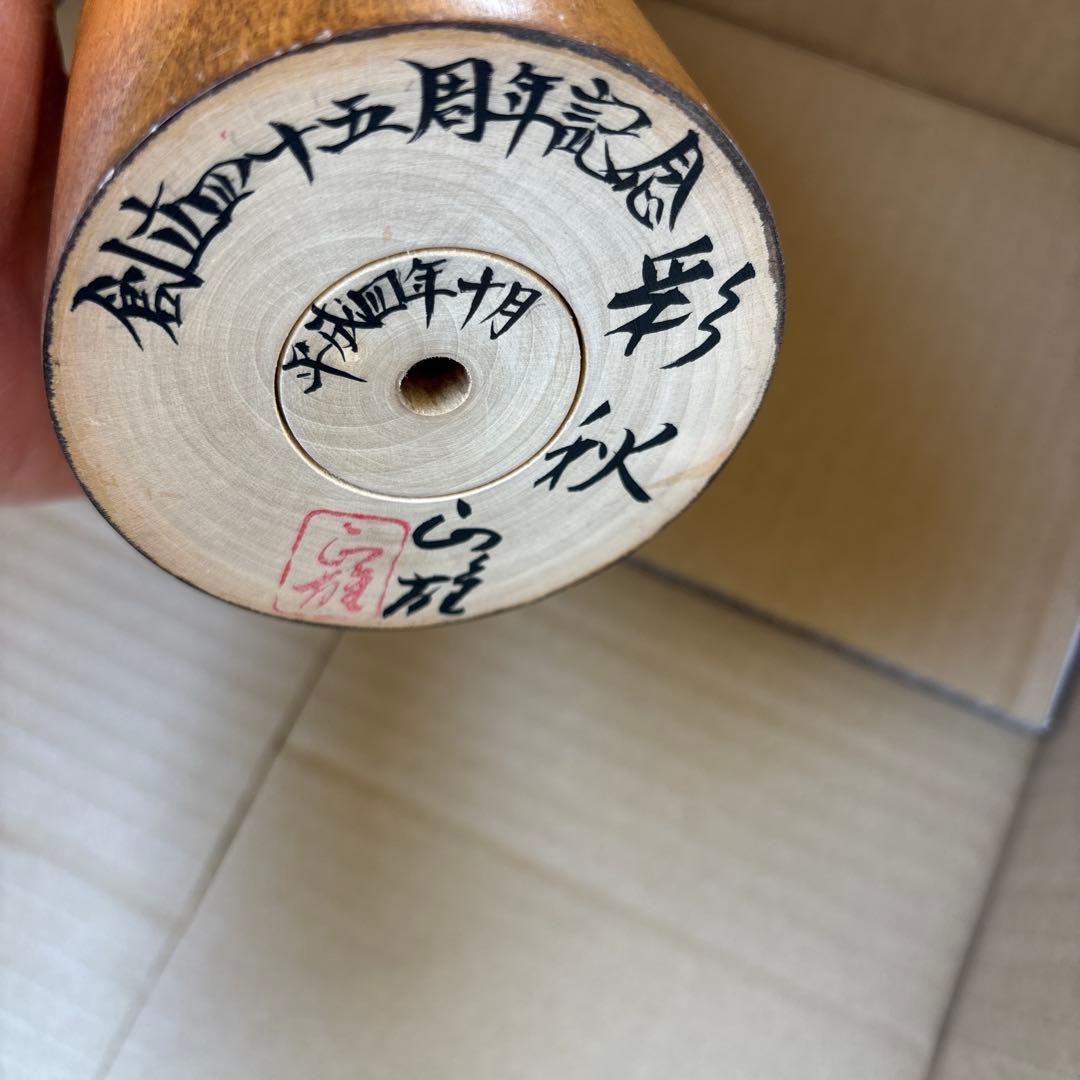 創立四十五周年記念
平成四年十月
彩秋
山雄
山雄